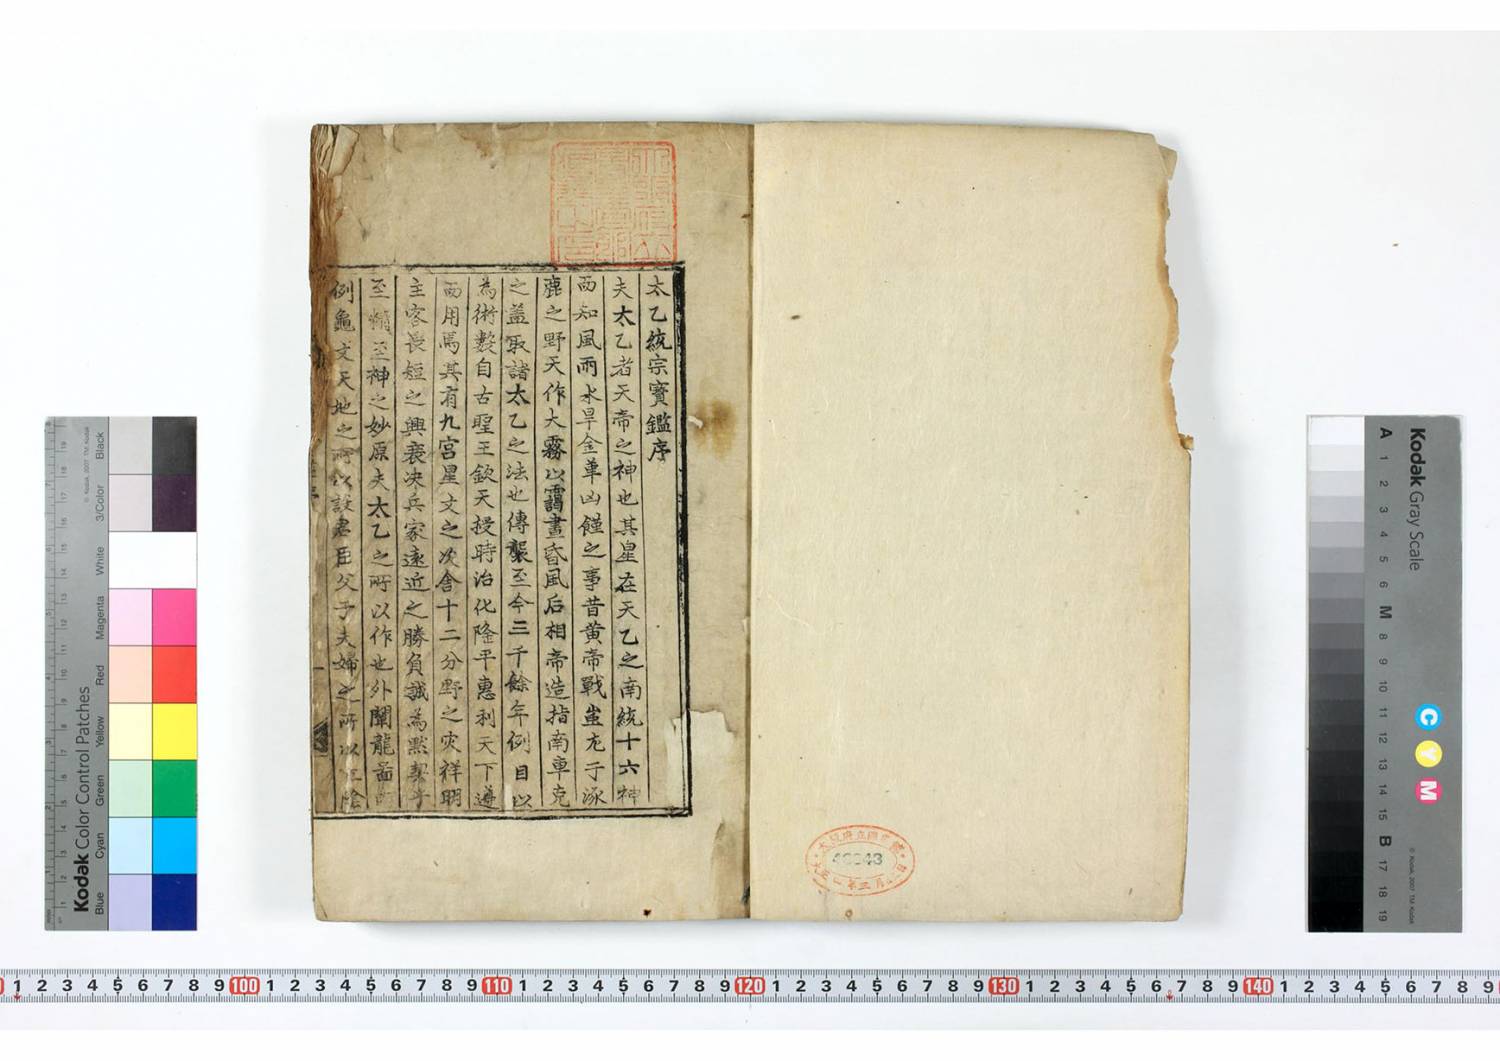 太乙統宗寳鑑序
夫太乙者天帝之神也其星在天乙之南統十六神
而知風雨水旱金革凶饉之事昔黄帝戰蚩尤于涿
鹿之野天作大霧以靄晝昏風后相帝造指南車克
之盖取諸太乙之法也傳襲至今三千餘年例目以
為術數自古聖王欽天授時治化隆平惠利天下遵
而用焉其有九宫星文之次舍十二分野之灾祥明
主客長短之興衰决兵家遠近之勝負誠為黙契乎
至精至神之妙原夫太乙之所以作也外闡龍啚
例龜文天地之所以設君臣父子夫婦之所以
大阪府立圖書館
46643
Kodak Color Control Patches
Blue Cyan Green Yellow Red Magenta White 3/Color Black
© Kodak, 2007 TM: Kodak
Kodak Gray Scale
C Y M
A 1 2 3 4 5 6 M 8 9 10 11 12 13 14 15 B 17 18 19
© Kodak, 2007 TM: Kodak
1 2 3 4 5 6 7 8 9 100 1 2 3 4 5 6 7 8 9 110 1 2 3 4 5 6 7 8 9 120 1 2 3 4 5 6 7 8 9 130 1 2 3 4 5 6 7 8 9 140 1 2 3 4 5 6 7 8 9